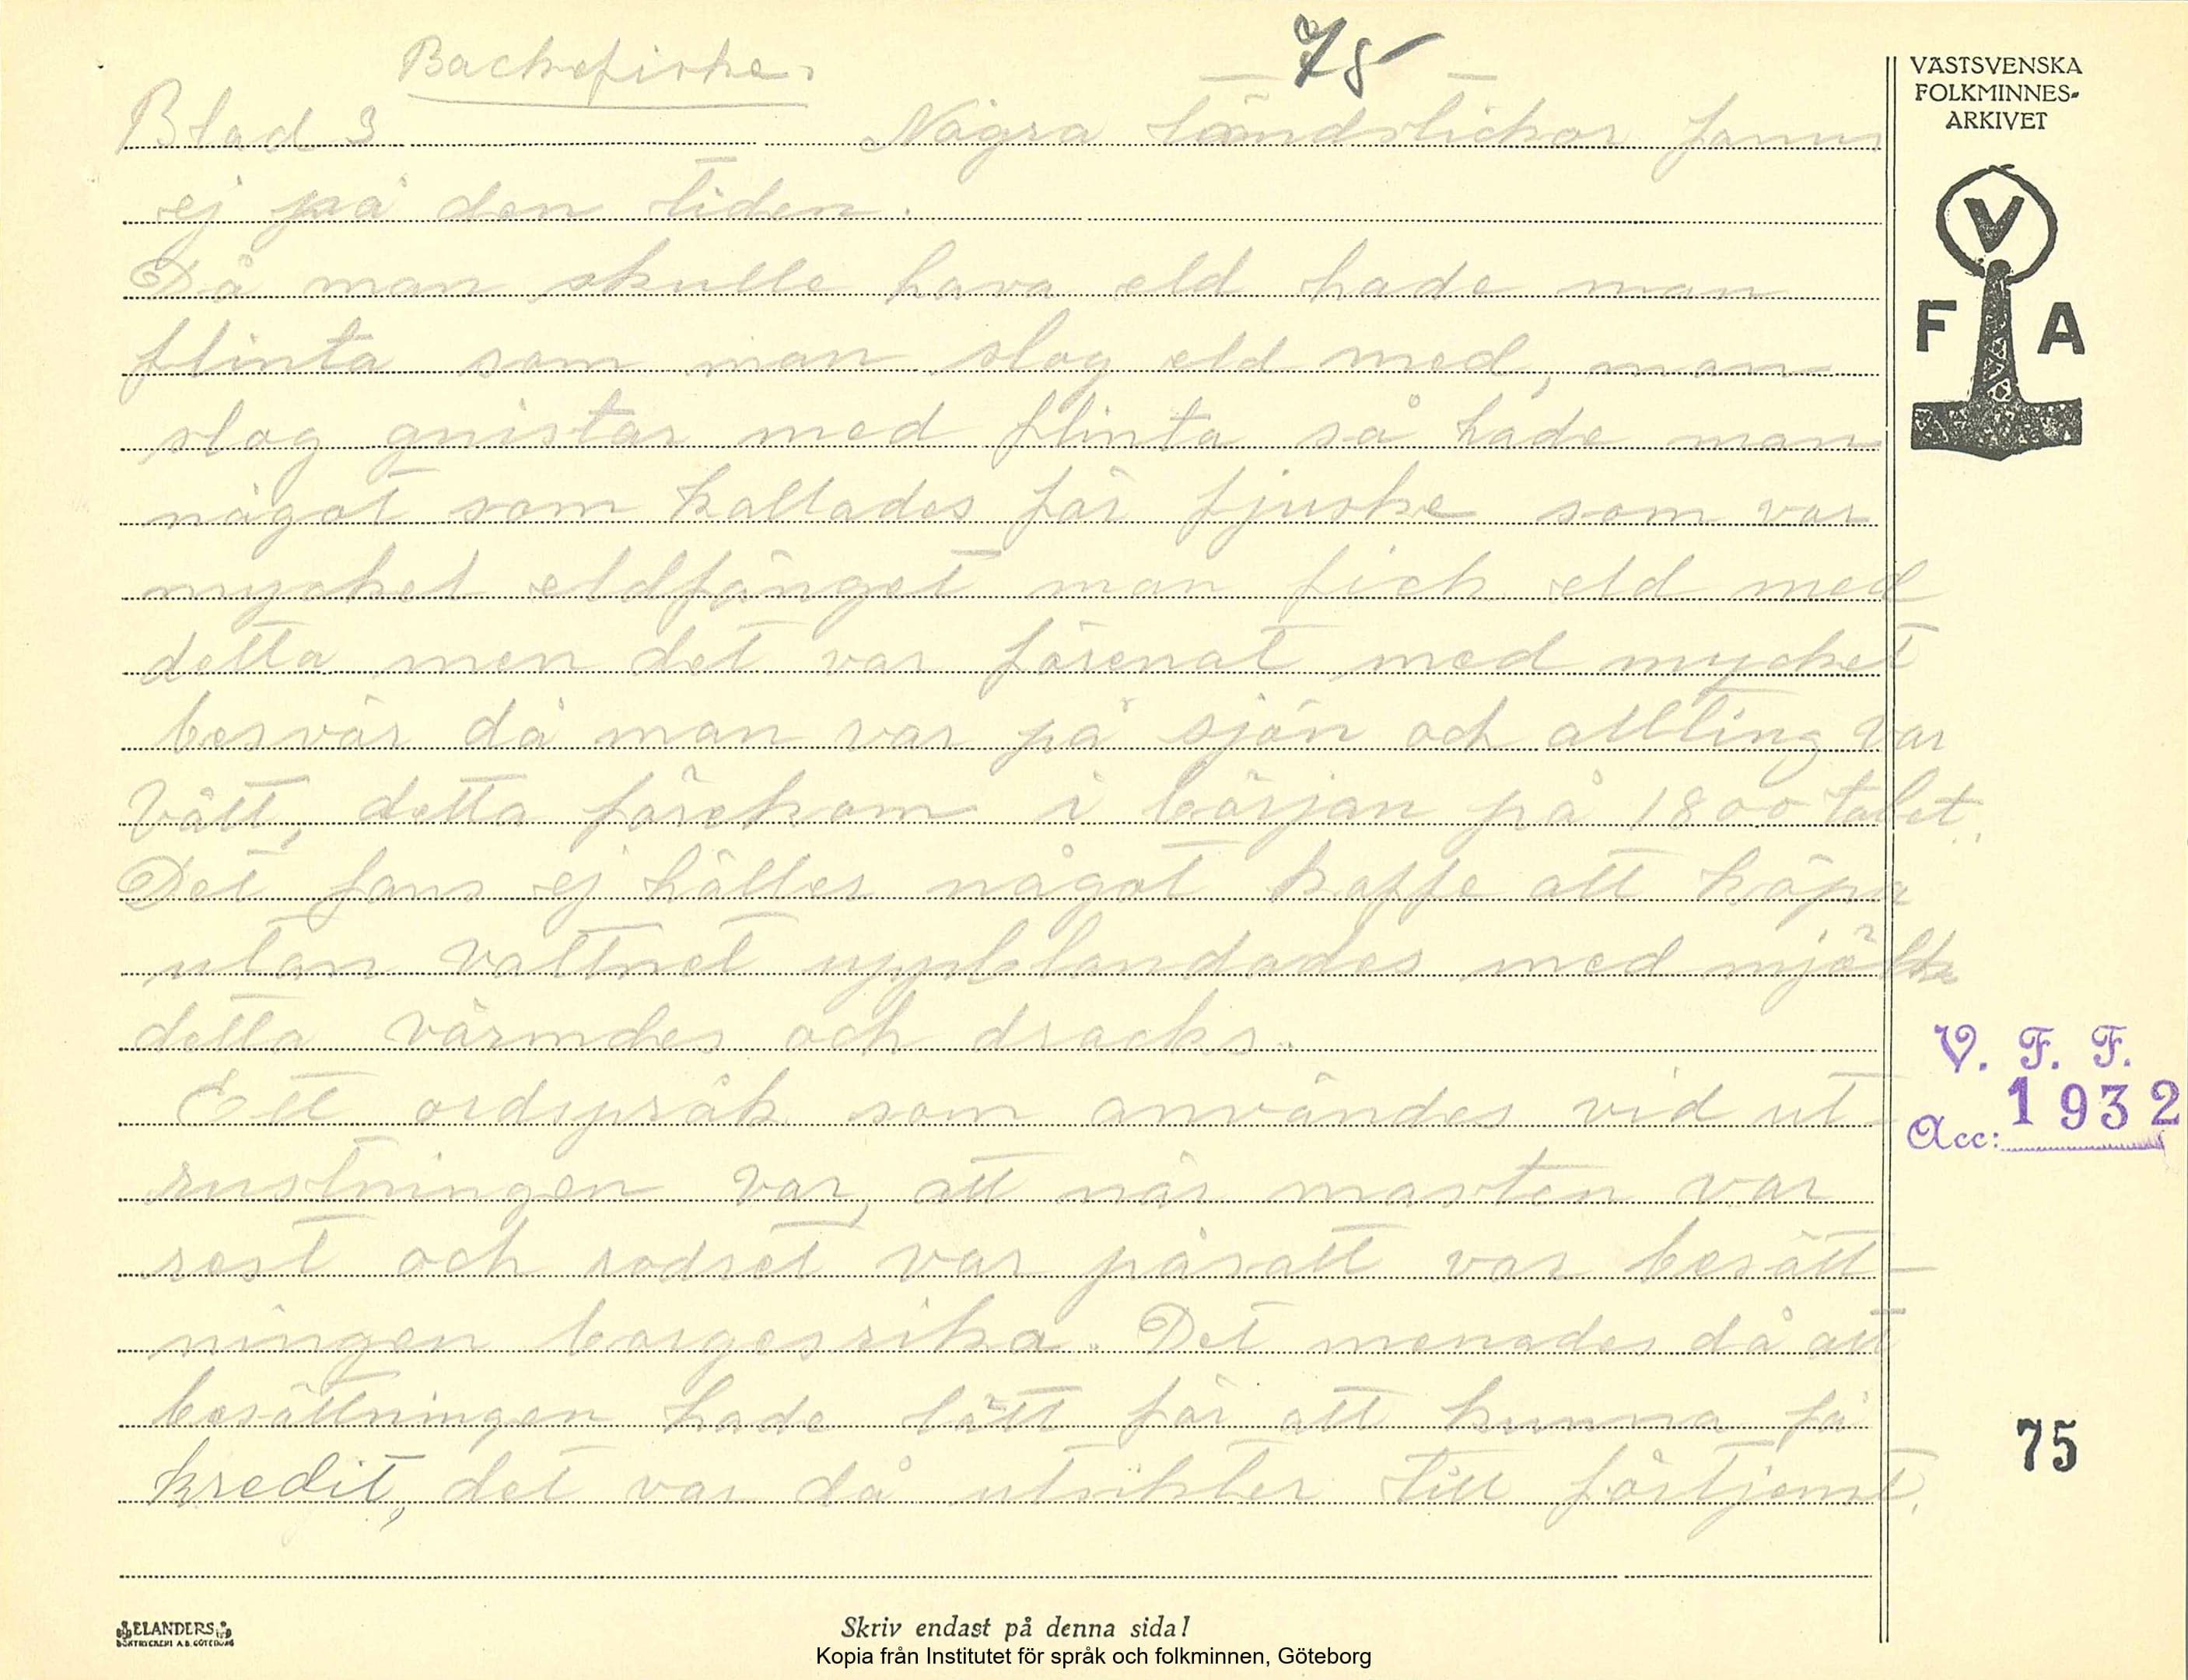 Backefiske.
75
Blad 3 Några tändstickor fanns
ej på den tiden.
Då man skulle hava eld hade man
flinta som man slog eld med, man
slog gnistar med flinta så hade man
något som kallades för fjuske som var
mycket eldfänget man fick eld med
detta men det var förenat med mycket
besvär då man var på sjön och allting var
Vått, detta förekom i början på 1800 talet.
Det fans ej häller något kaffe att köpa
utan vattnet uppblandades med mjölk
detta värmdes och dracks.
Ett ordspråk som användes vid ut-
rustningen var, att när masten var
rest och rodret var påsatt var besätt-
ningen borgesrika. Det menades då att
besättningen hade lätt för att kunna få
kredit, det var då utsikter till förtjenst.
VÄSTSVENSKA
FOLKMINNES-
ARKIVET
V
F A
V. F. F.
1932
Acc:
75
ELANDERS
BOKTRYCKERI A.B. GÖTEBORG
Skriv endast på denna sida!
Kopia från Institutet för språk och folkminnen, Göteborg